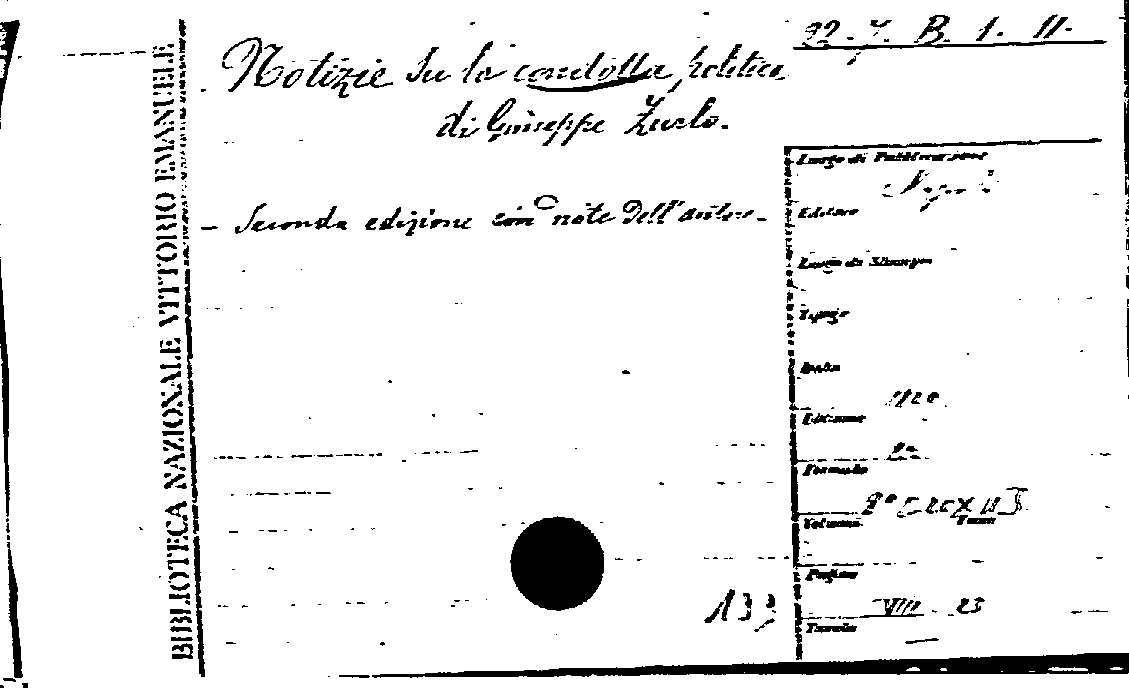 BIBLIOTECA NAZIONALE VITTORIO EMANUELE
22. 7. B. 1. 11.
Notizie su la condotta politica
di Giuseppe Zurlo.
- Seconda edizione con note dell'autore -
Luogo di Pubblicazione
Napoli
Editore
Luogo di Stampa
Tipogr.
Data
1820
Edizione
2a
Formato
8°
Volume
Tomo
Pagine
VIII 23
Tavole
—
133